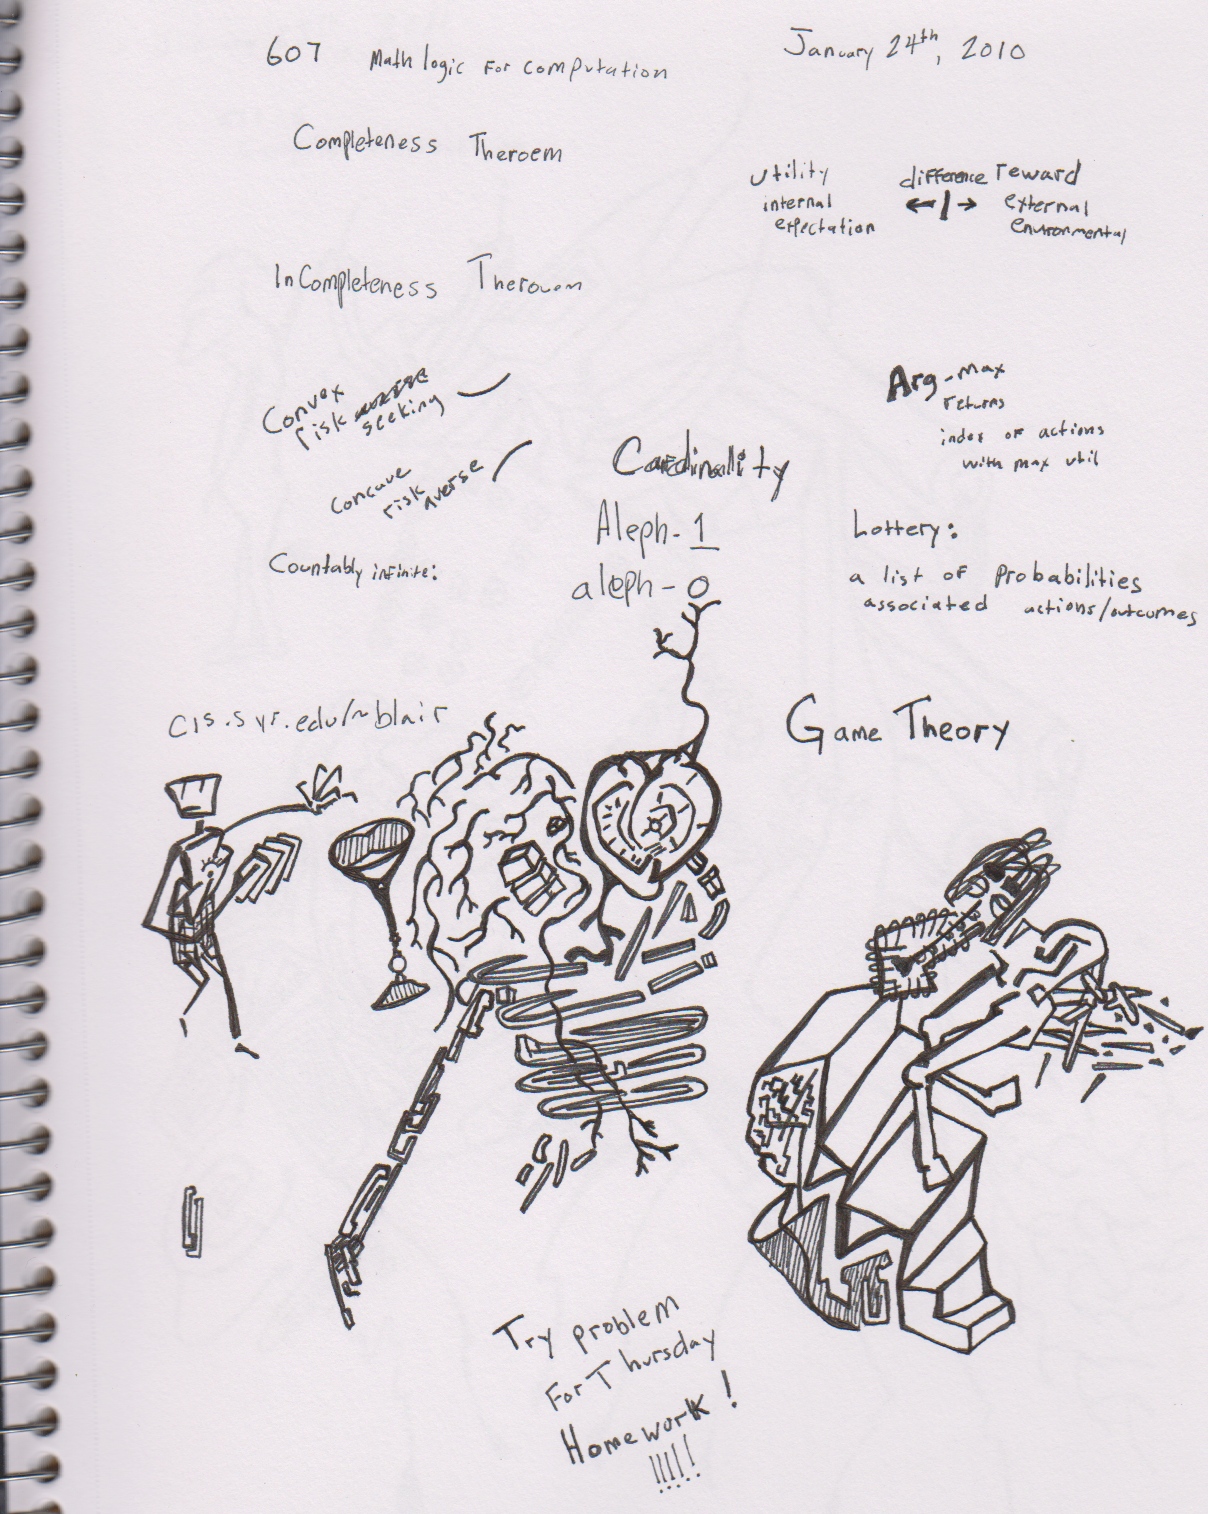 607 Math logic for computation
January 24th, 2010
Completeness Theroem
utility difference reward
internal external
expectation environmental
InCompleteness
Convex
risk
seeking
Concave
risk averse
Arg-max
returns
index of actions
with max util
Cardinality
Aleph-1
aleph-0
Countably infinite:
Lottery:
a list of probabilities
associated actions/outcomes
cis.syr.edu/~blair
Game Theory
Try problem
For Thursday
Homework!
!!!!!